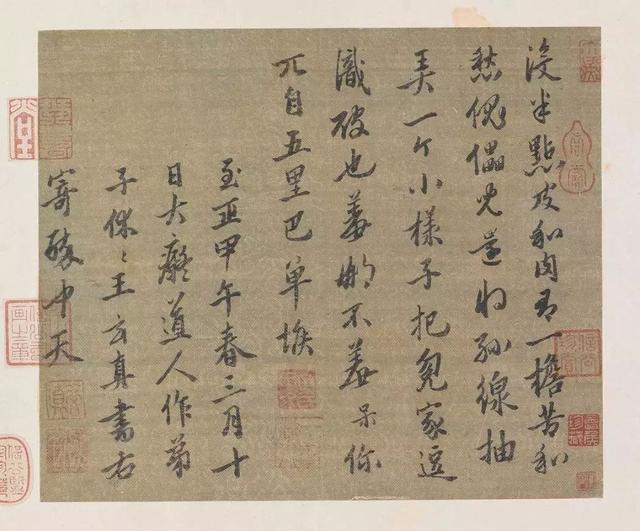 没半點皮和肉有一檐苦和
愁傀儡児還将絲線抽
弄一个小樣子把寃家逗
識破也羞那不羞呆你
兀自五里巴单堠
至正甲午春三月十
日大癡道人作弟
子休〻王玄真書右
寄醉中天